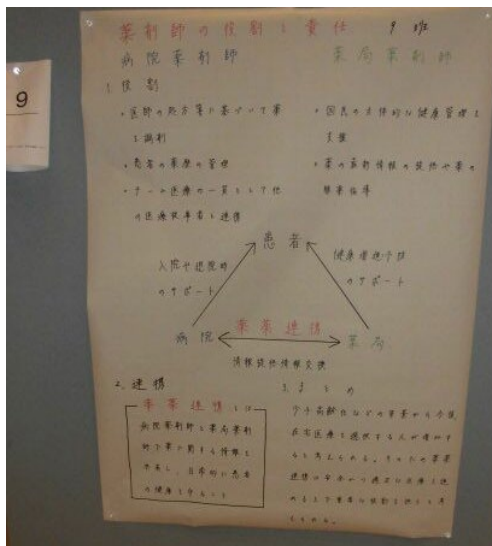 薬剤師の役割と責任 9班
9
病院薬剤師 薬局薬剤師
1. 役割
・医師の処方箋に基づいて薬
を調剤
・患者の薬歴の管理
・チーム医療の一員として他
の医療従事者と連携
・国民の主体的な健康管理を
支援
・薬の最新情報の提供や薬の
服薬指導
患者
入院や退院時
のサポート
健康増進や
のサポート
病院 薬薬連携 薬局
情報提供情報交換
2. 連携
薬薬連携とは
病院薬剤師と薬局薬剤
師で薬に関する情報を
共有し、日常的に患者
の健康を守ること
3. まとめ
少子高齢化などの背景から今後、
在宅医療を選択する人が増加す
ると考えられる。そのため薬薬
連携は安全かつ適正な医療を進
める上で重要な役割を担うと考
えられる。